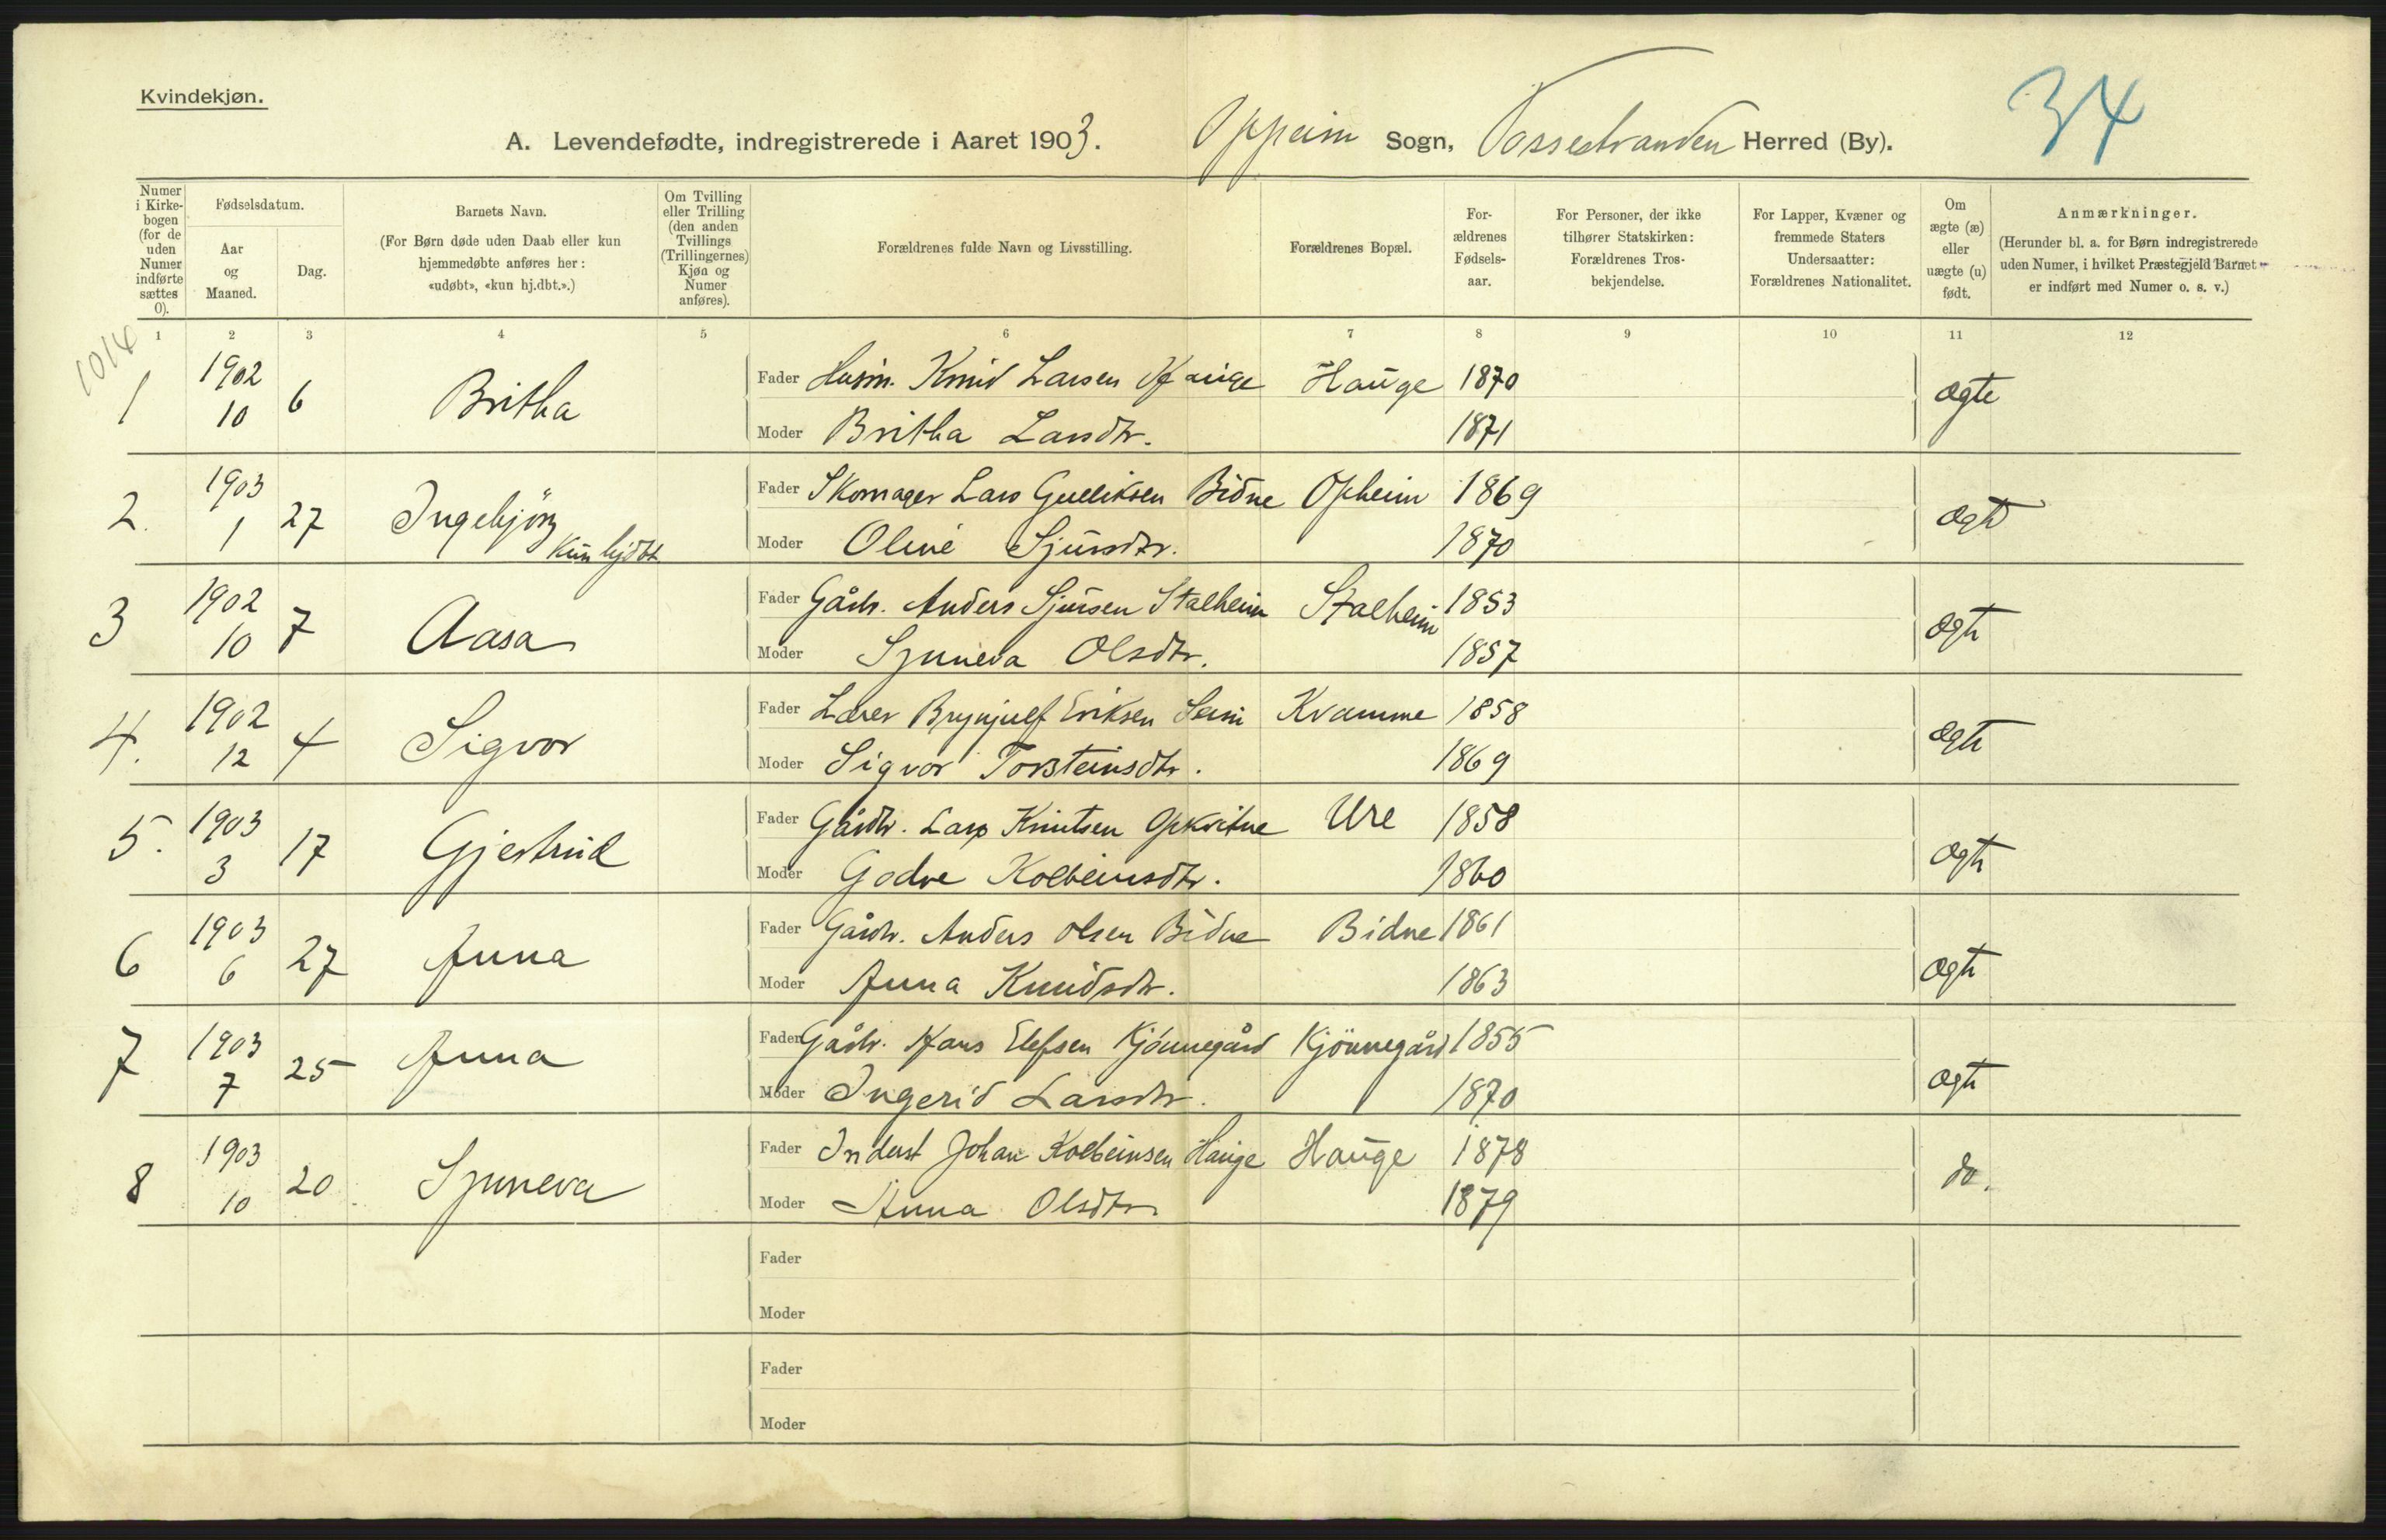 Kvindekjøn.
34
A. Levendefødte, indregistrerede i Aaret 1903. Oppeim Sogn, Vossestranden Herred (By).
Numer i Kirkebogen (for de uden Numer indførte sættes 0).
Fødselsdatum.
Aar og Maaned.
Dag.
Barnets Navn.
(For Børn døde uden Daab eller kun hjemmedøbte anføres her: «udøbt», «kun hj.dbt.».)
Om Tvilling eller Trilling (den anden Tvillings (Trillingernes) Kjøn og Numer anføres).
Forældrenes fulde Navn og Livsstilling.
Forældrenes Bopæl.
Forældrenes Fødselsaar.
For Personer, der ikke tilhører Statskirken: Forældrenes Trosbekjendelse.
For Lapper, Kvæner og fremmede Staters Undersaatter: Forældrenes Nationalitet.
Om ægte (æ) eller uægte (u) født.
Anmærkninger.
(Herunder bl. a. for Børn indregistrerede uden Numer, i hvilket Præstegjeld Barnet er indført med Numer o. s. v.)
1 2 3 4 5 6 7 8 9 10 11 12
1014
1 1902 10 6 Britha Fader Husm. Knud Larsen Hauge Hauge 1870 ægte
Moder Britha Larsdtr. 1871
2. 1903 1 27 Ingebjörg kun hjdbt Fader Skomager Lars Gulliksen Bidne Opheim 1869 ægte
Moder Oline Sjursdtr. 1870
3 1902 10 7 Aasa Fader Gårdb. Anders Sjursen Stalheim Stalheim 1853 ægte
Moder Synneva Olsdtr. 1857
4. 1902 12 4 Sigvor Fader Lærer Brynjulf Eriksen Seim Kvamme 1858 ægte
Moder Sigvor Torsteinsdtr. 1869
5. 1903 3 17 Gjertrud Fader Gårdb. Lars Knutsen Opkvitne Ure 1858 ægte
Moder Godve Kolbeinsdtr. 1860
6 1903 6 27 Anna Fader Gårdb. Anders Olsen Bidne Bidne 1861 ægte
Moder Anna Knudsdtr. 1863
7 1903 7 25 Anna Fader Gårdb. Hans Elefsen Kjönnegård Kjönnegård 1855 ægte
Moder Ingerid Larsdtr. 1870
8 1903 10 20 Synneva Fader Inderst Johan Kolbeinsen Hauge Hauge 1878 do.
Moder Anna Olsdtr. 1879
Fader
Moder
Fader
Moder